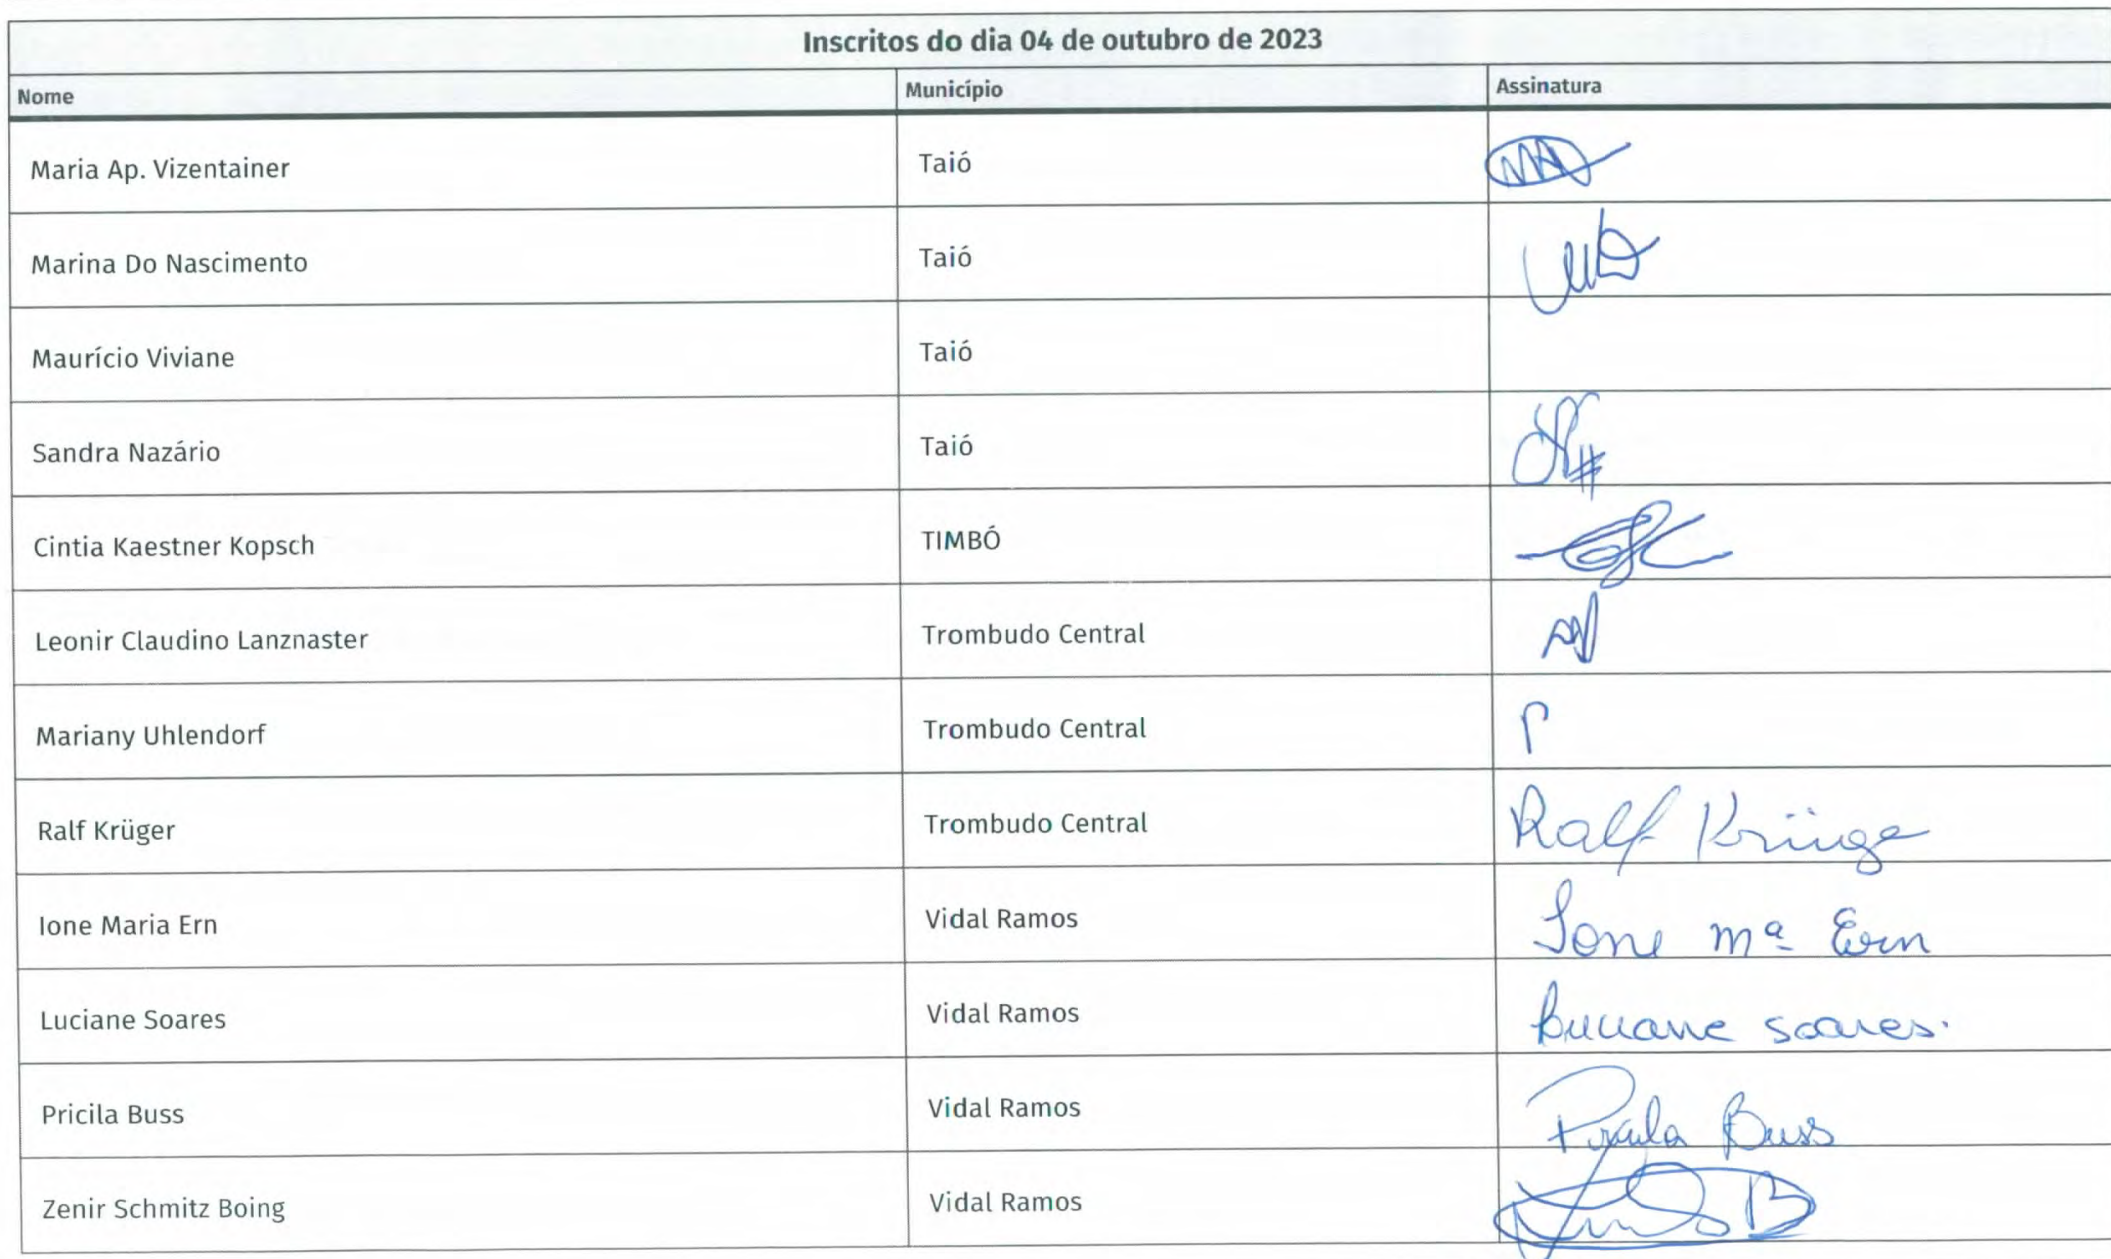 Inscritos do dia 04 de outubro de 2023
Nome Município Assinatura
Maria Ap. Vizentainer Taió
Marina Do Nascimento Taió
Maurício Viviane Taió
Sandra Nazário Taió
Cintia Kaestner Kopsch TIMBÓ
Leonir Claudino Lanznaster Trombudo Central
Mariany Uhlendorf Trombudo Central
Ralf Krüger Trombudo Central Ralf Krüge
Ione Maria Ern Vidal Ramos Ione Mª Ern
Luciane Soares Vidal Ramos Luciane Soares.
Pricila Buss Vidal Ramos Pricila Buss
Zenir Schmitz Boing Vidal Ramos